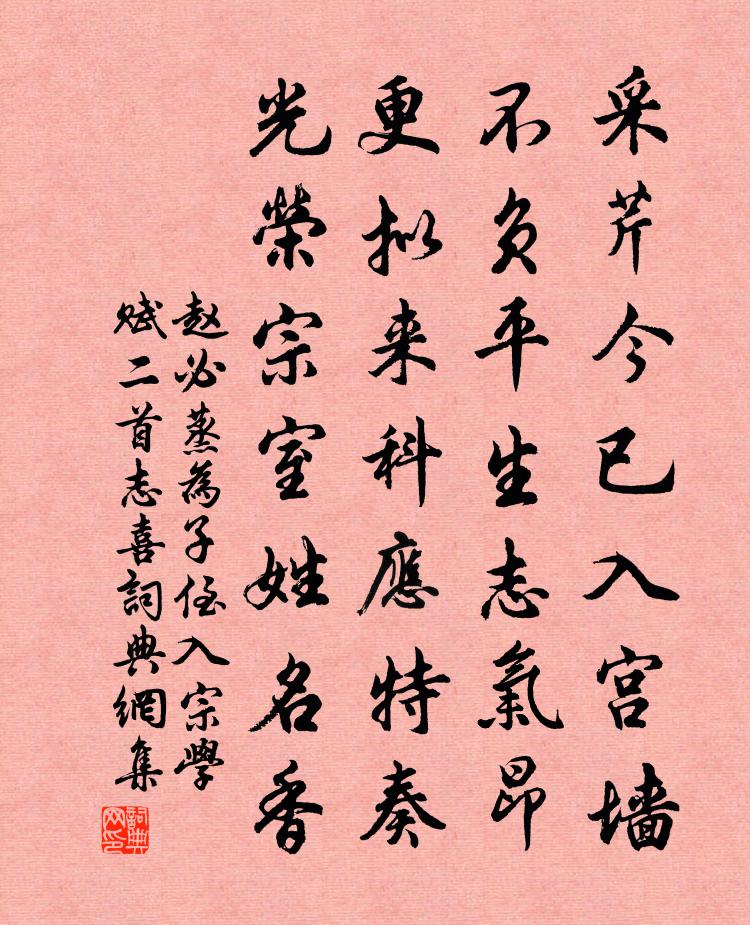 采芹今已入宫墙
不负平生志氣昂
更拟来科應特奏
光榮宗室姓名香
赵必蒸為子侄入宗學
赋二首志喜詞典網集
詞典网印